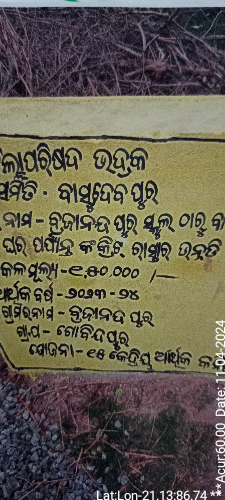 ଲ୍ଲାପରିଷଦ ଭଦ୍ରକ
ସମିତି - ବାସୁଦେବପୁର
ନାମ - ବ୍ରଜାନନ୍ଦପୁର ସ୍କୁଲ ଠାରୁ କା
ଘର ପର୍ଯ୍ୟନ୍ତ କଂକ୍ରିଟ୍ ରାସ୍ତାର ଉନ୍ନତି
କଳମୂଲ୍ୟ - ୧,୫୦,୦୦୦ /-
ଆର୍ଥିକ ବର୍ଷ - ୨୦୨୩ - ୨୪
ଗ୍ରାମର ନାମ - ବ୍ରଜାନନ୍ଦପୁର
ଗ୍ରା.ପ - ଗୋବିନ୍ଦପୁର
ଯୋଜନା - ୧୫ କେନ୍ଦ୍ରିୟ ଆର୍ଥିକ କ
Lat:Lon-21.13:86.74
**Acur:60.00 Date: 11-04-2024